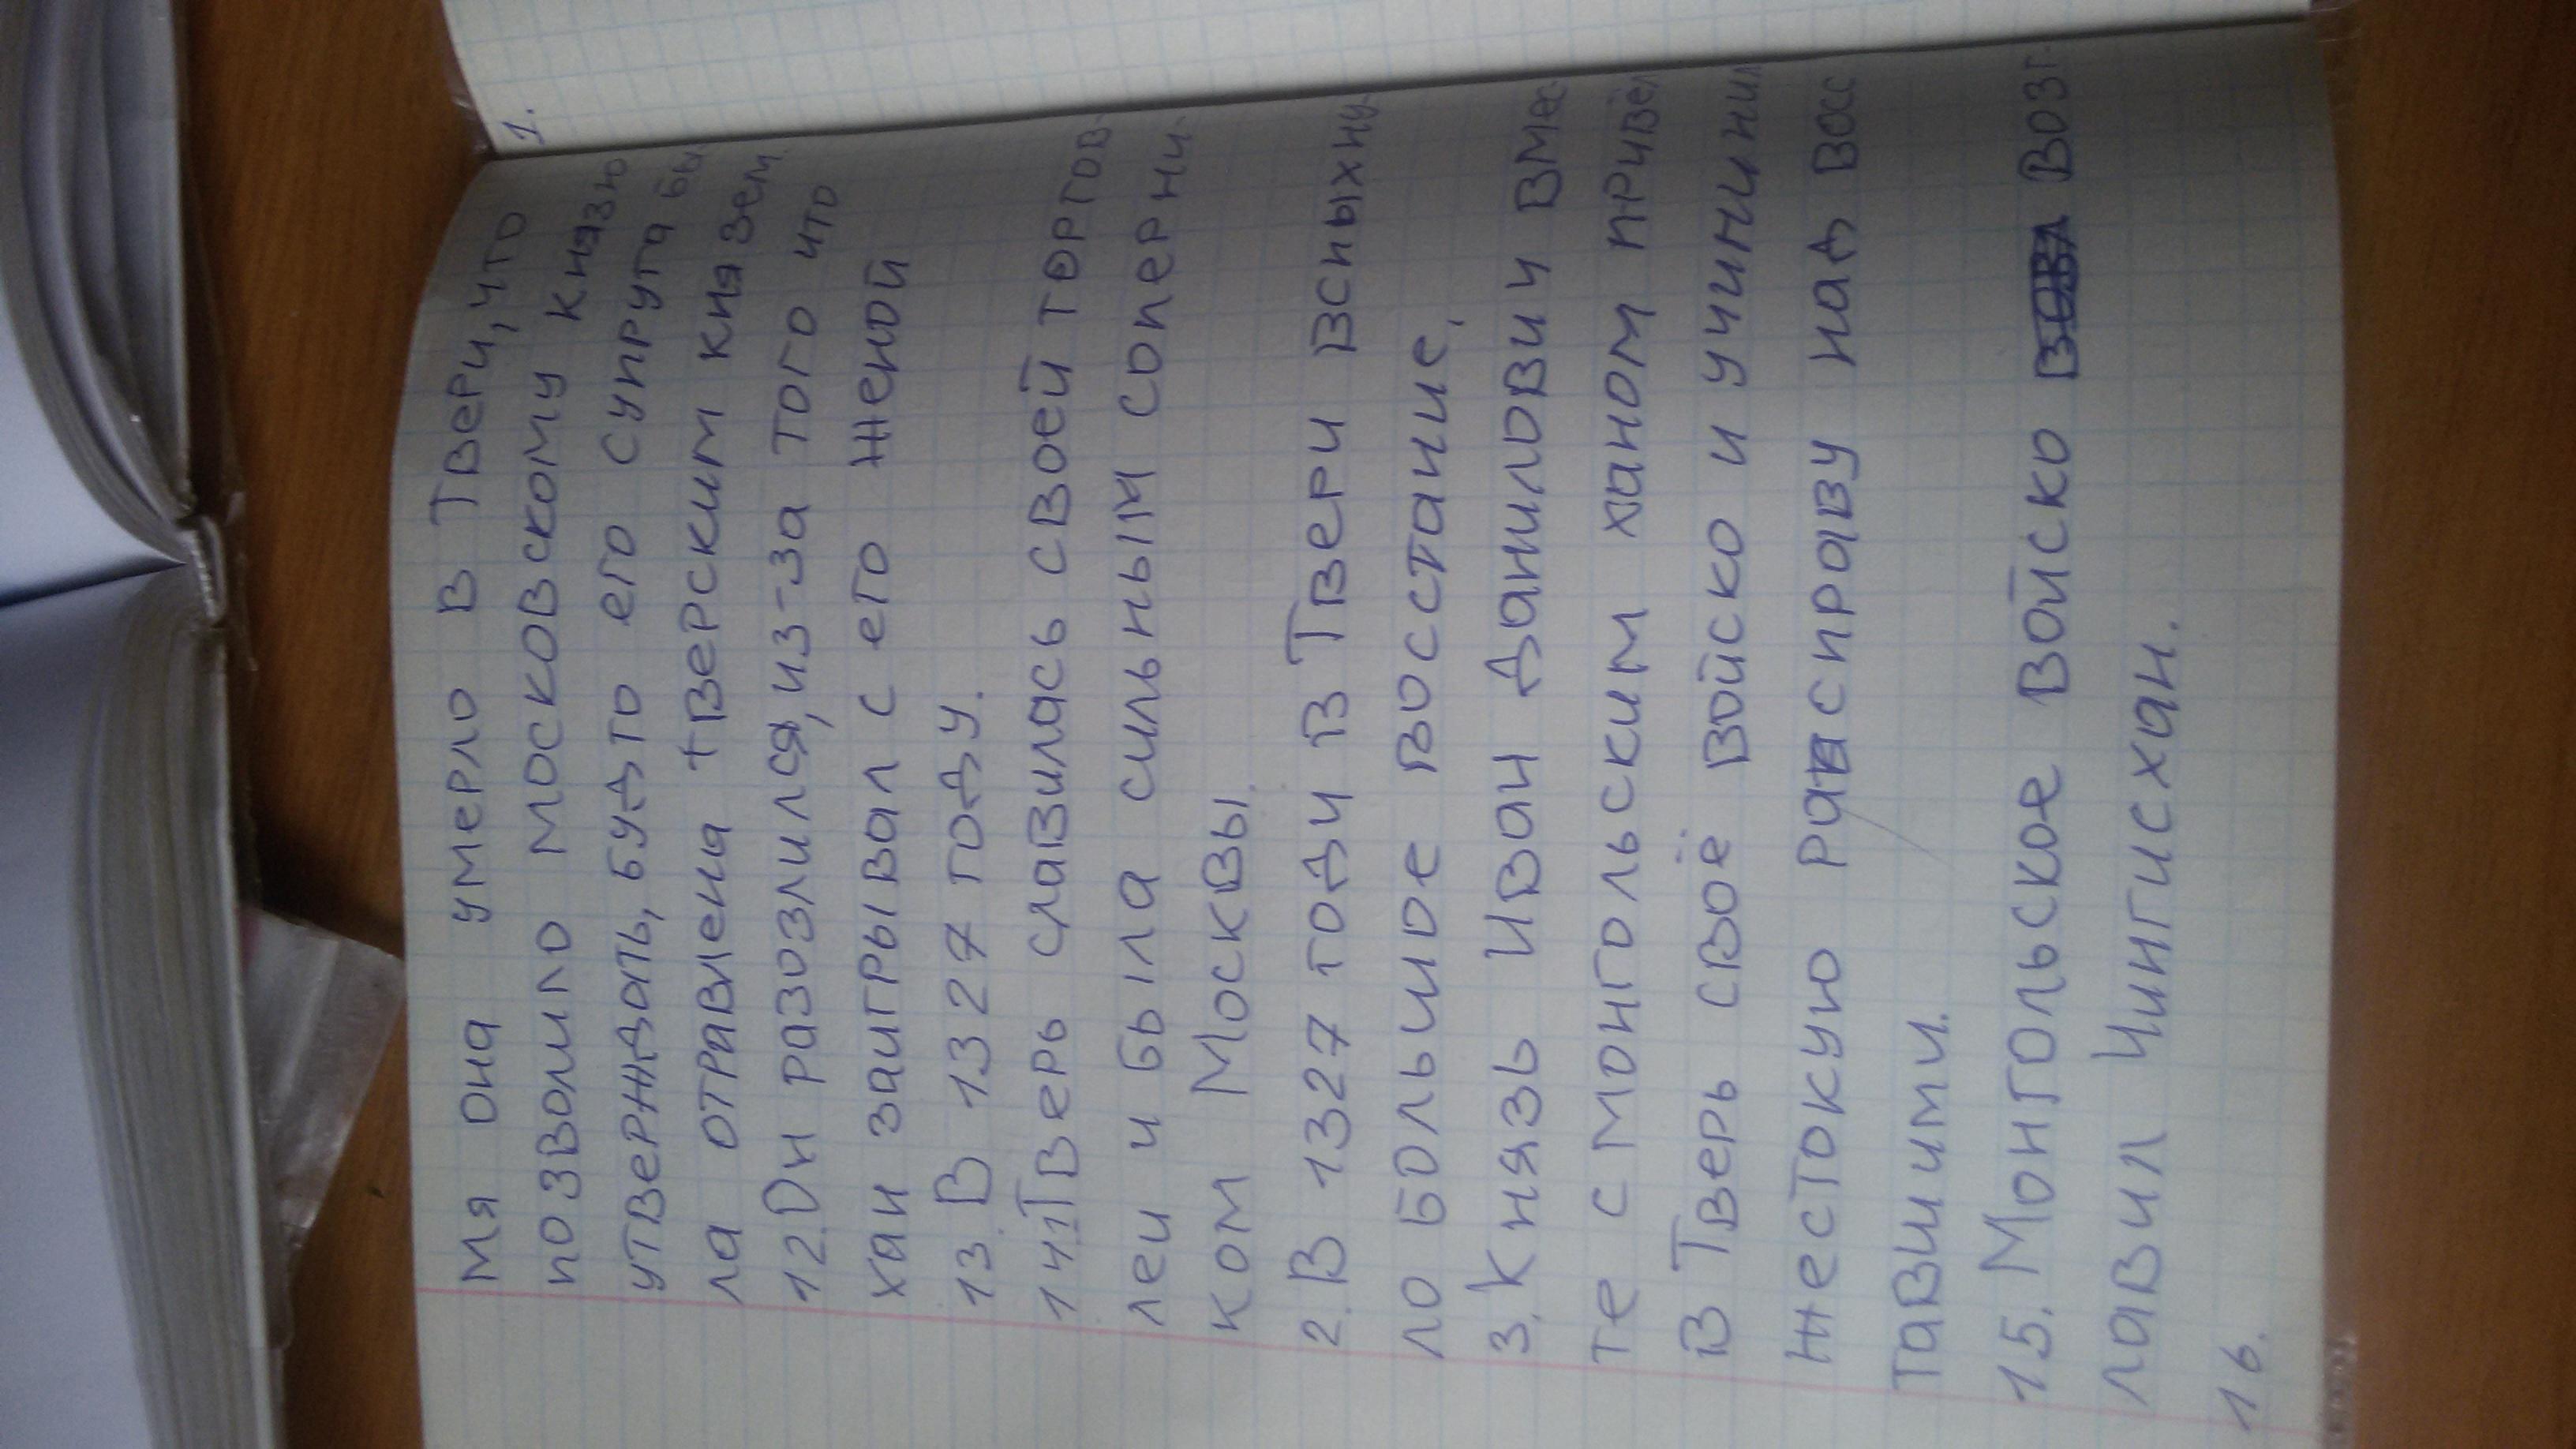 мя она умерло в Твери, что
позволило московскому князю
утверждать, будто его супруга бы-
ла отравлена тверским князем.
12. Он разозлился, из-за того что
хан заигрывал с его женой
13. В 1327 году.
14.1. Тверь славилась своей торгов-
леи и была сильным соперни-
ком Москвы.
2. В 1327 годи в Твери вспыхну-
ло большое восстание,
3. Князь Иван Данилович вмес-
те с монгольским ханом привёл
в Тверь своё войско и учинил
жестокую расправу над восс
тавшими.
15. Монгольское войско возг-
лавил Чингисхан.
16.
1.